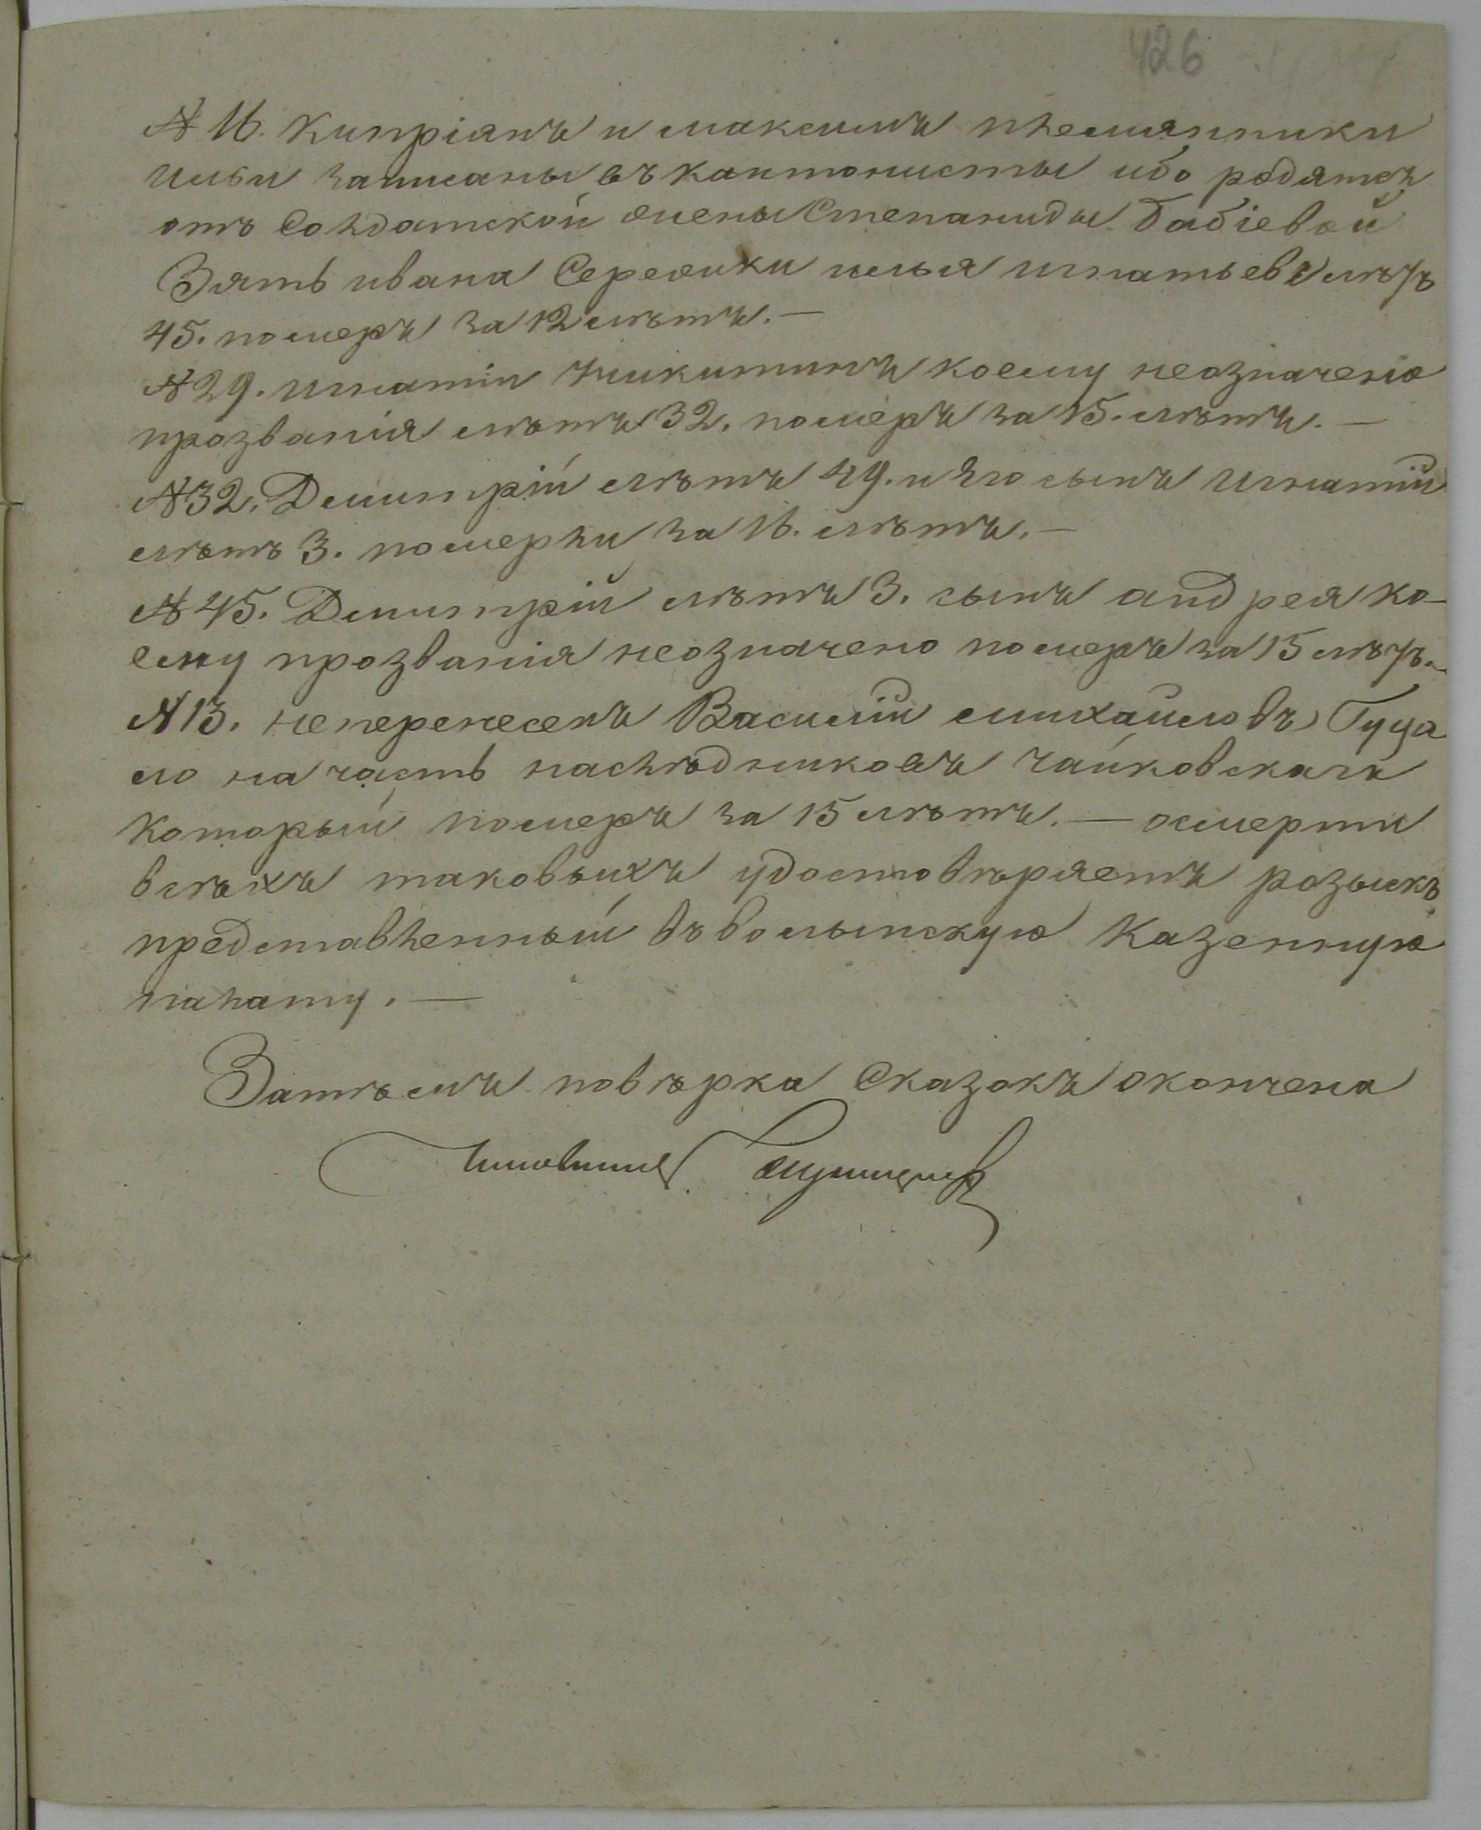 426
№ 16. Кипріянъ и максимъ племянники
ильи записаны въ кантонисты ибо родятся
отъ Солдатской жены Степаниды Бабіевой
Зять ивана Середики илья игнатьевъ лѣтъ
45. померъ за 12 лѣтъ. —
№ 29. игнатій Никитинъ коему неозначено
прозванія лѣтъ 32. померъ за 15. лѣтъ. —
№ 32. Дмитрій лѣтъ 49. и Его сынъ игнатій
лѣтъ 3. померли за 16. лѣтъ. —
№ 45. Дмитрій лѣтъ 3. сынъ андрея ко-
ему прозванія неозначено померъ за 15 лѣтъ. —
№ 13. неперенесенъ Василій михайловъ Гуца
ло на часть наслѣдниковъ чайковскаго
который померъ за 15 лѣтъ. — осмерти
всѣхъ таковыхъ удостовѣряетъ розыскъ
представленный въ волынскую Казенную
палату. —
Затѣмъ повѣрка Сказокъ окончена
Чиновникъ